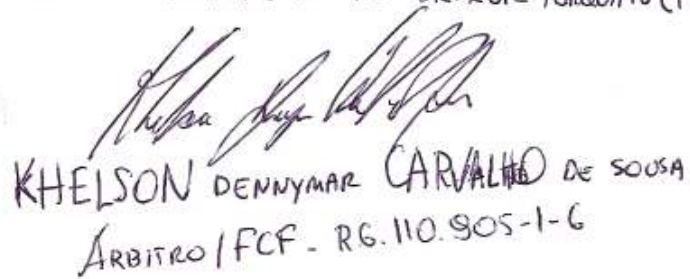 KHELSON DENNYMAR CARVALHO DE SOUSA
ÁRBITRO / FCF - RG. 110.905-1-6